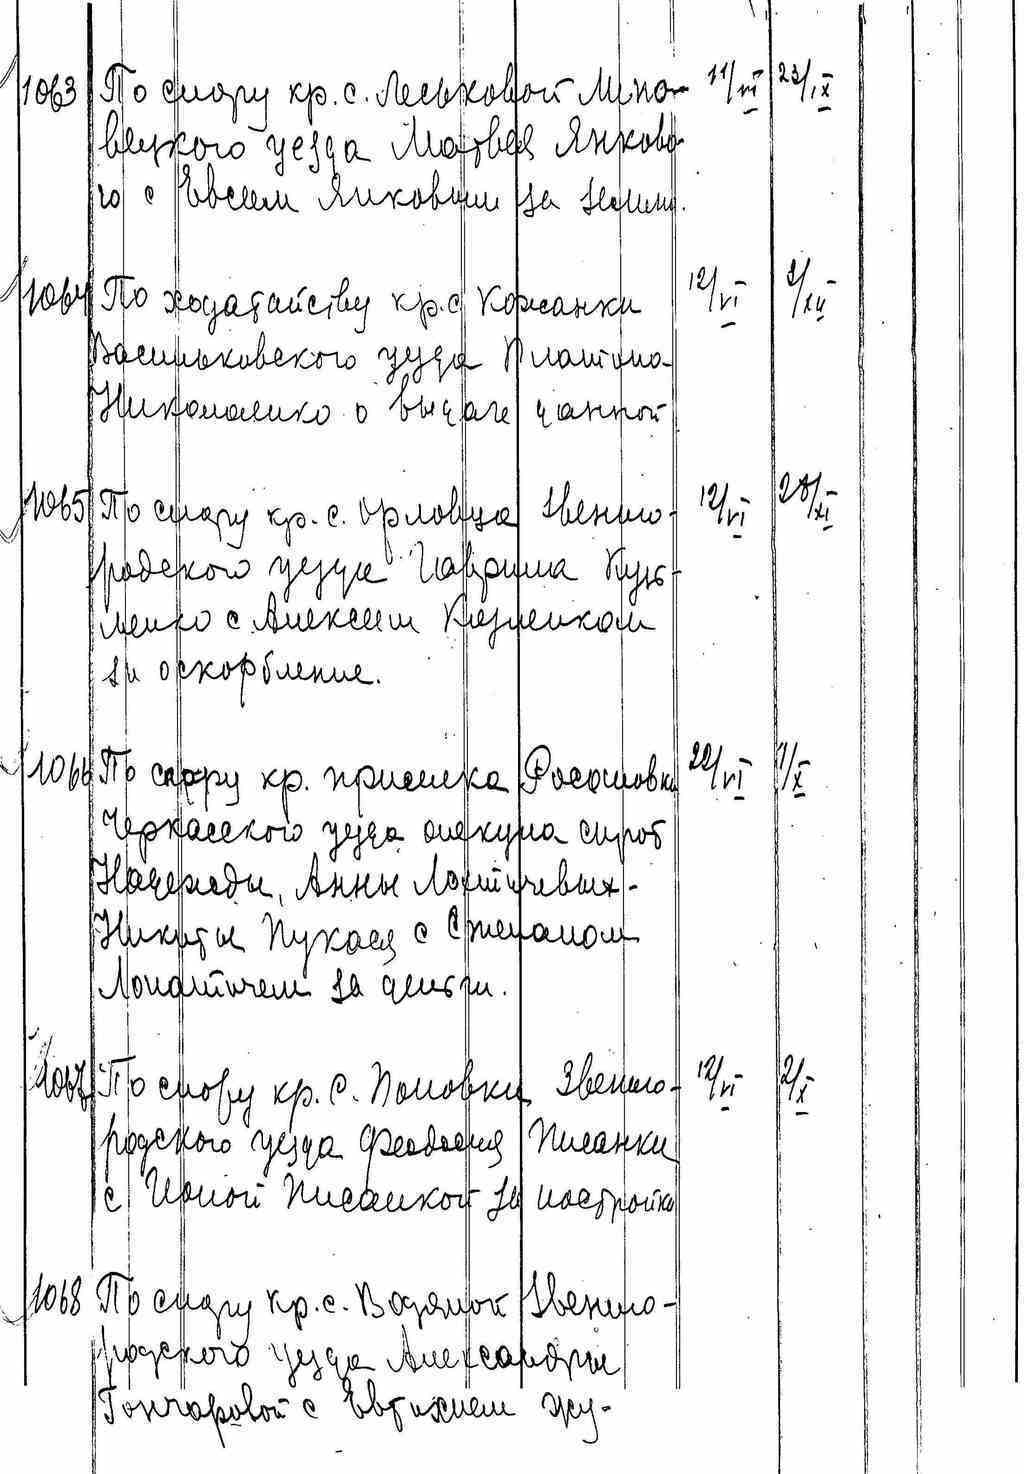 1063 По спору кр. с. Леськовой Липо- 11/VI 23/IX
вецкого уезда Матвея Янково-
го с Евсеем Янковым за землю.
1064 По ходатайству кр. с. Кожанки 12/VI 2/XII
Васильковского уезда Платона
Николаенко о выдаче данной
1065 По спору кр. с. Орловца Звениго- 12/VI 28/XI
родского уезда Гаврила Кузь-
менко с Алексеем Кузменком
за оскорбление.
1066 По спору кр. приселка Росошовки 22/VI 1/X
Черкасского уезда опекуна сирот
Надежды, Анны
Никиты Пукася с Степаном
Лопатичем за деньги.
1067 По спору кр. с. Поповки Звениго- 12/VI 2/X
родского уезда Феодосия Писанки
с Ионой Писанкой за постройки
1068 По спору кр. с. Водяной Звениго-
родского уезда Александры
Гончаровой с Евтихием Жу-